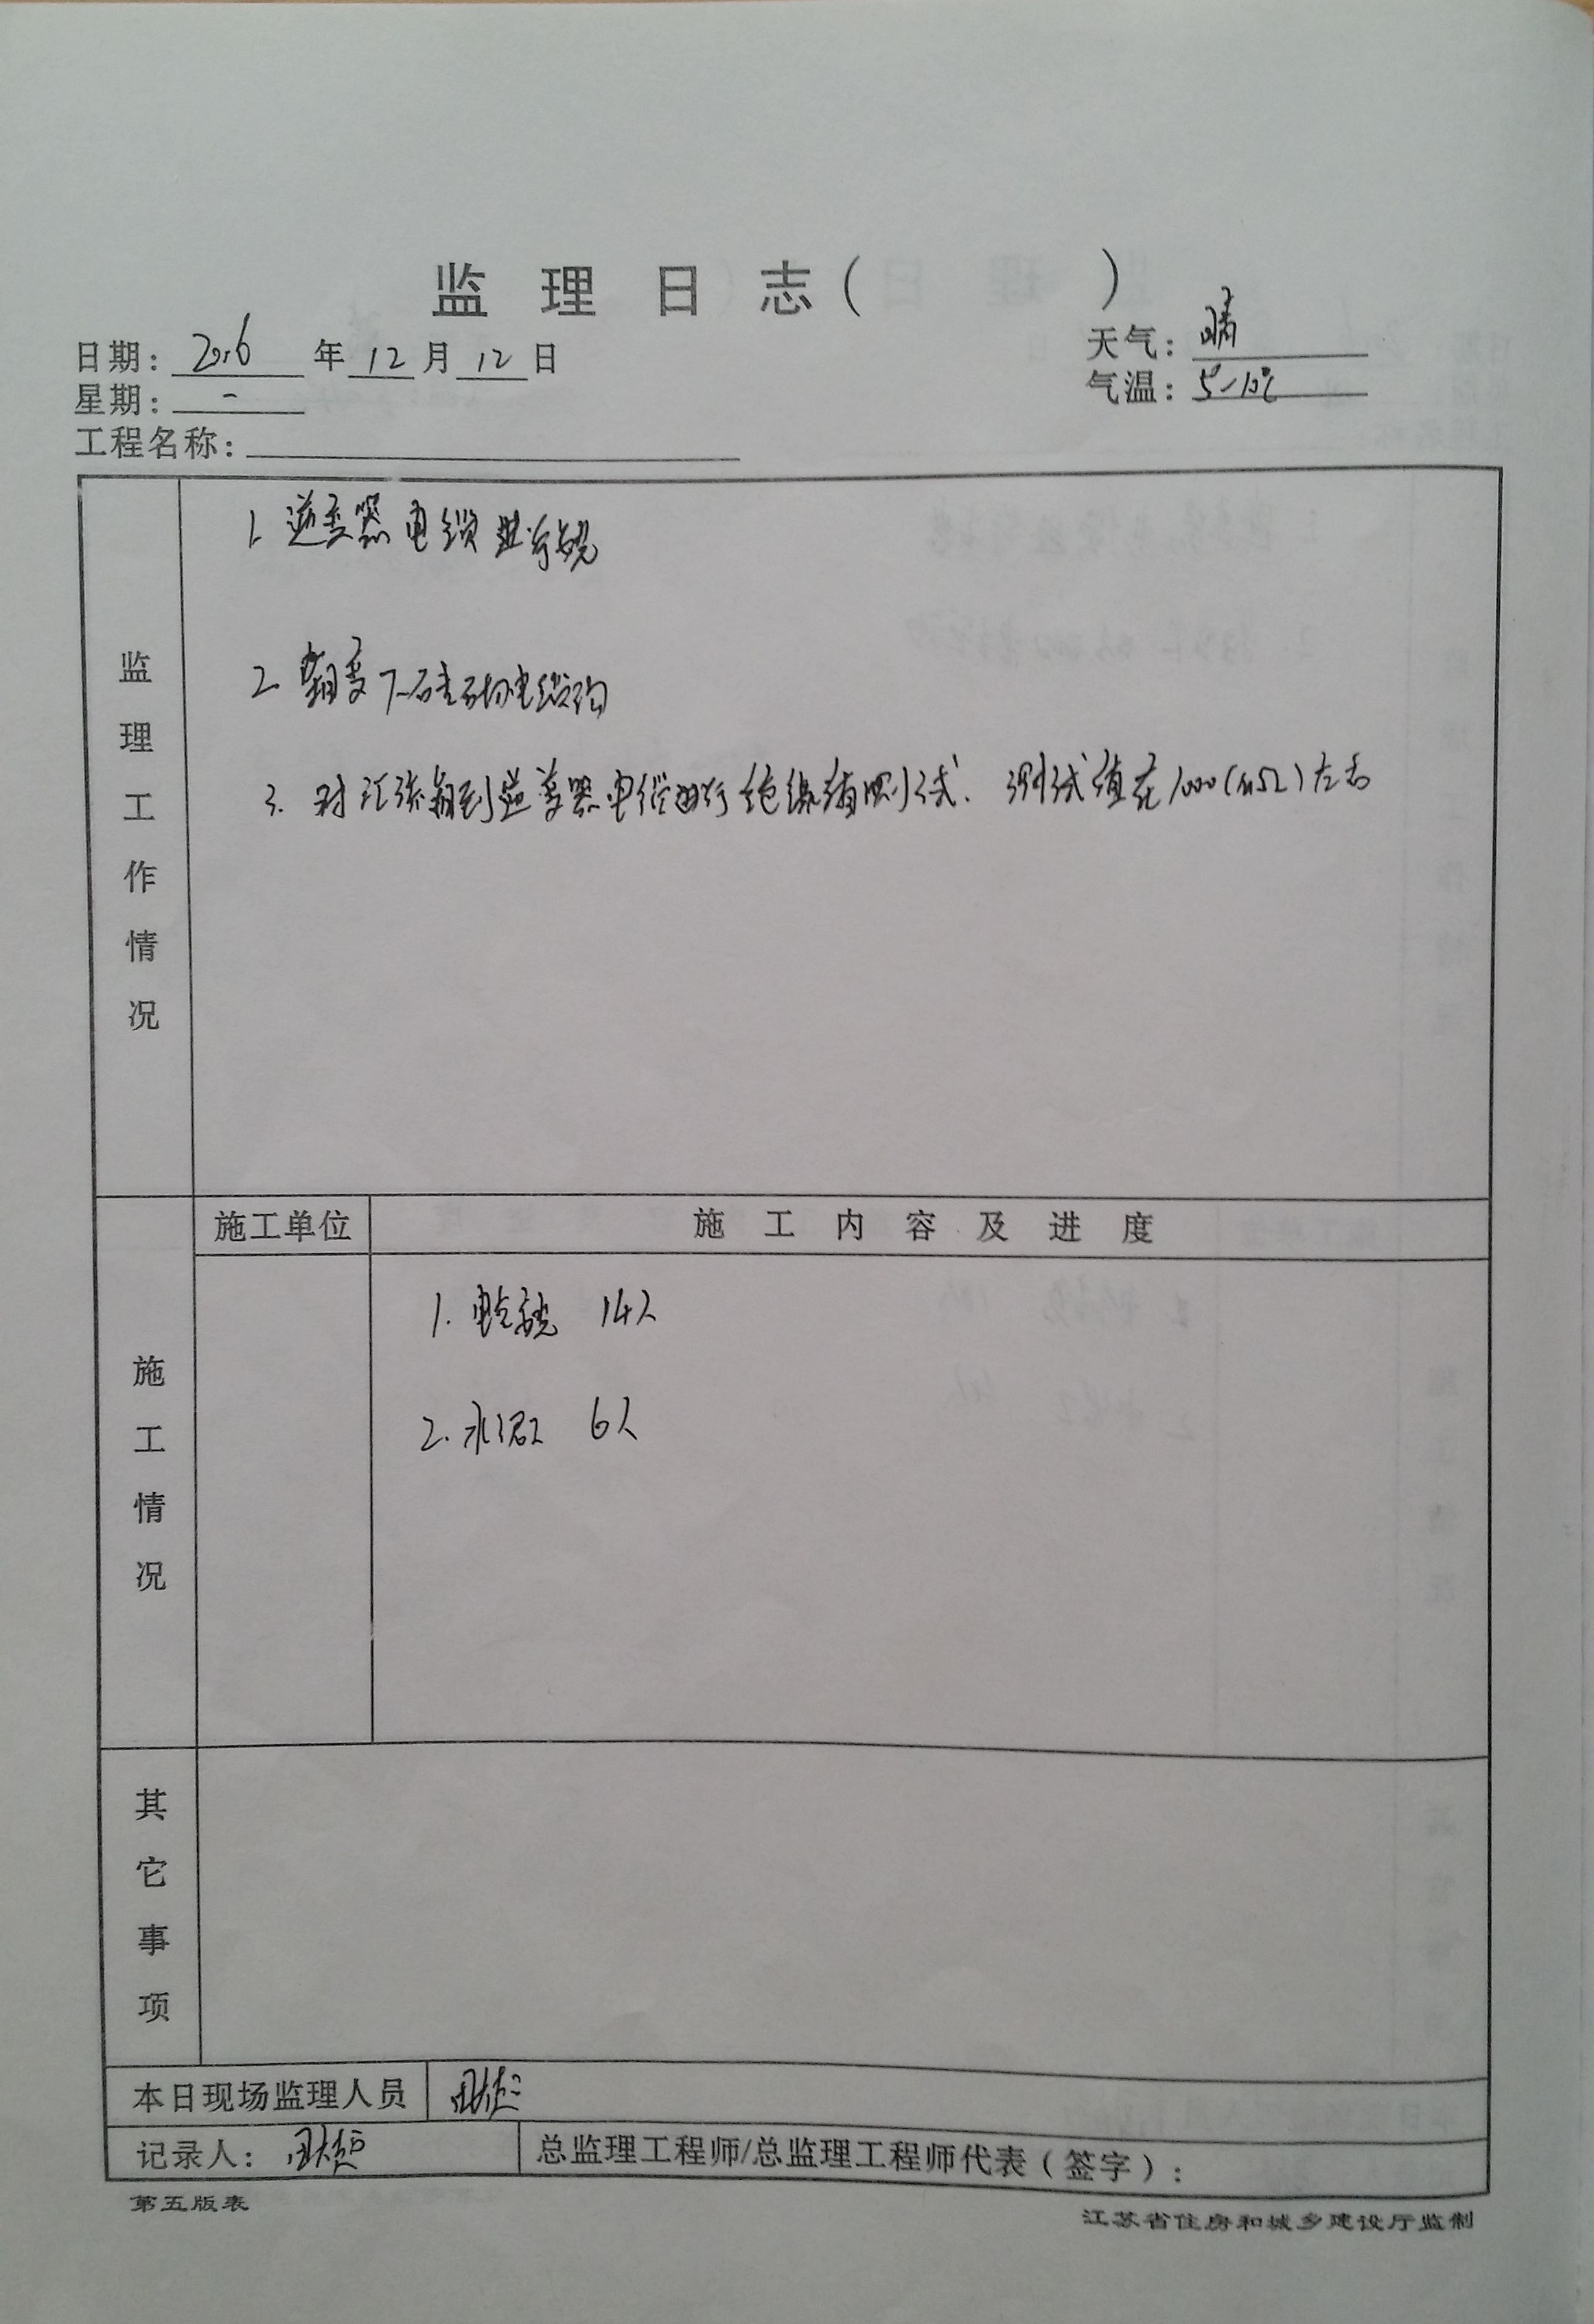 监理日志( )
日期: 2016 年 12 月 12 日
天气: 晴
星期: 一
气温: 5~10℃
工程名称:
监理工作情况
1. 逆变器电缆进行敷
2. 箱变下砖砌电缆沟
3. 对汇流箱到逆变器电缆进行绝缘测试. 测试值在1000(MΩ)左右
施工单位
施工内容及进度
施工情况
1. 电缆 14人
2. 水泥工 6人
其它事项
本日现场监理人员
记录人:
总监理工程师/总监理工程师代表(签字):
第五版表
江苏省住房和城乡建设厅监制